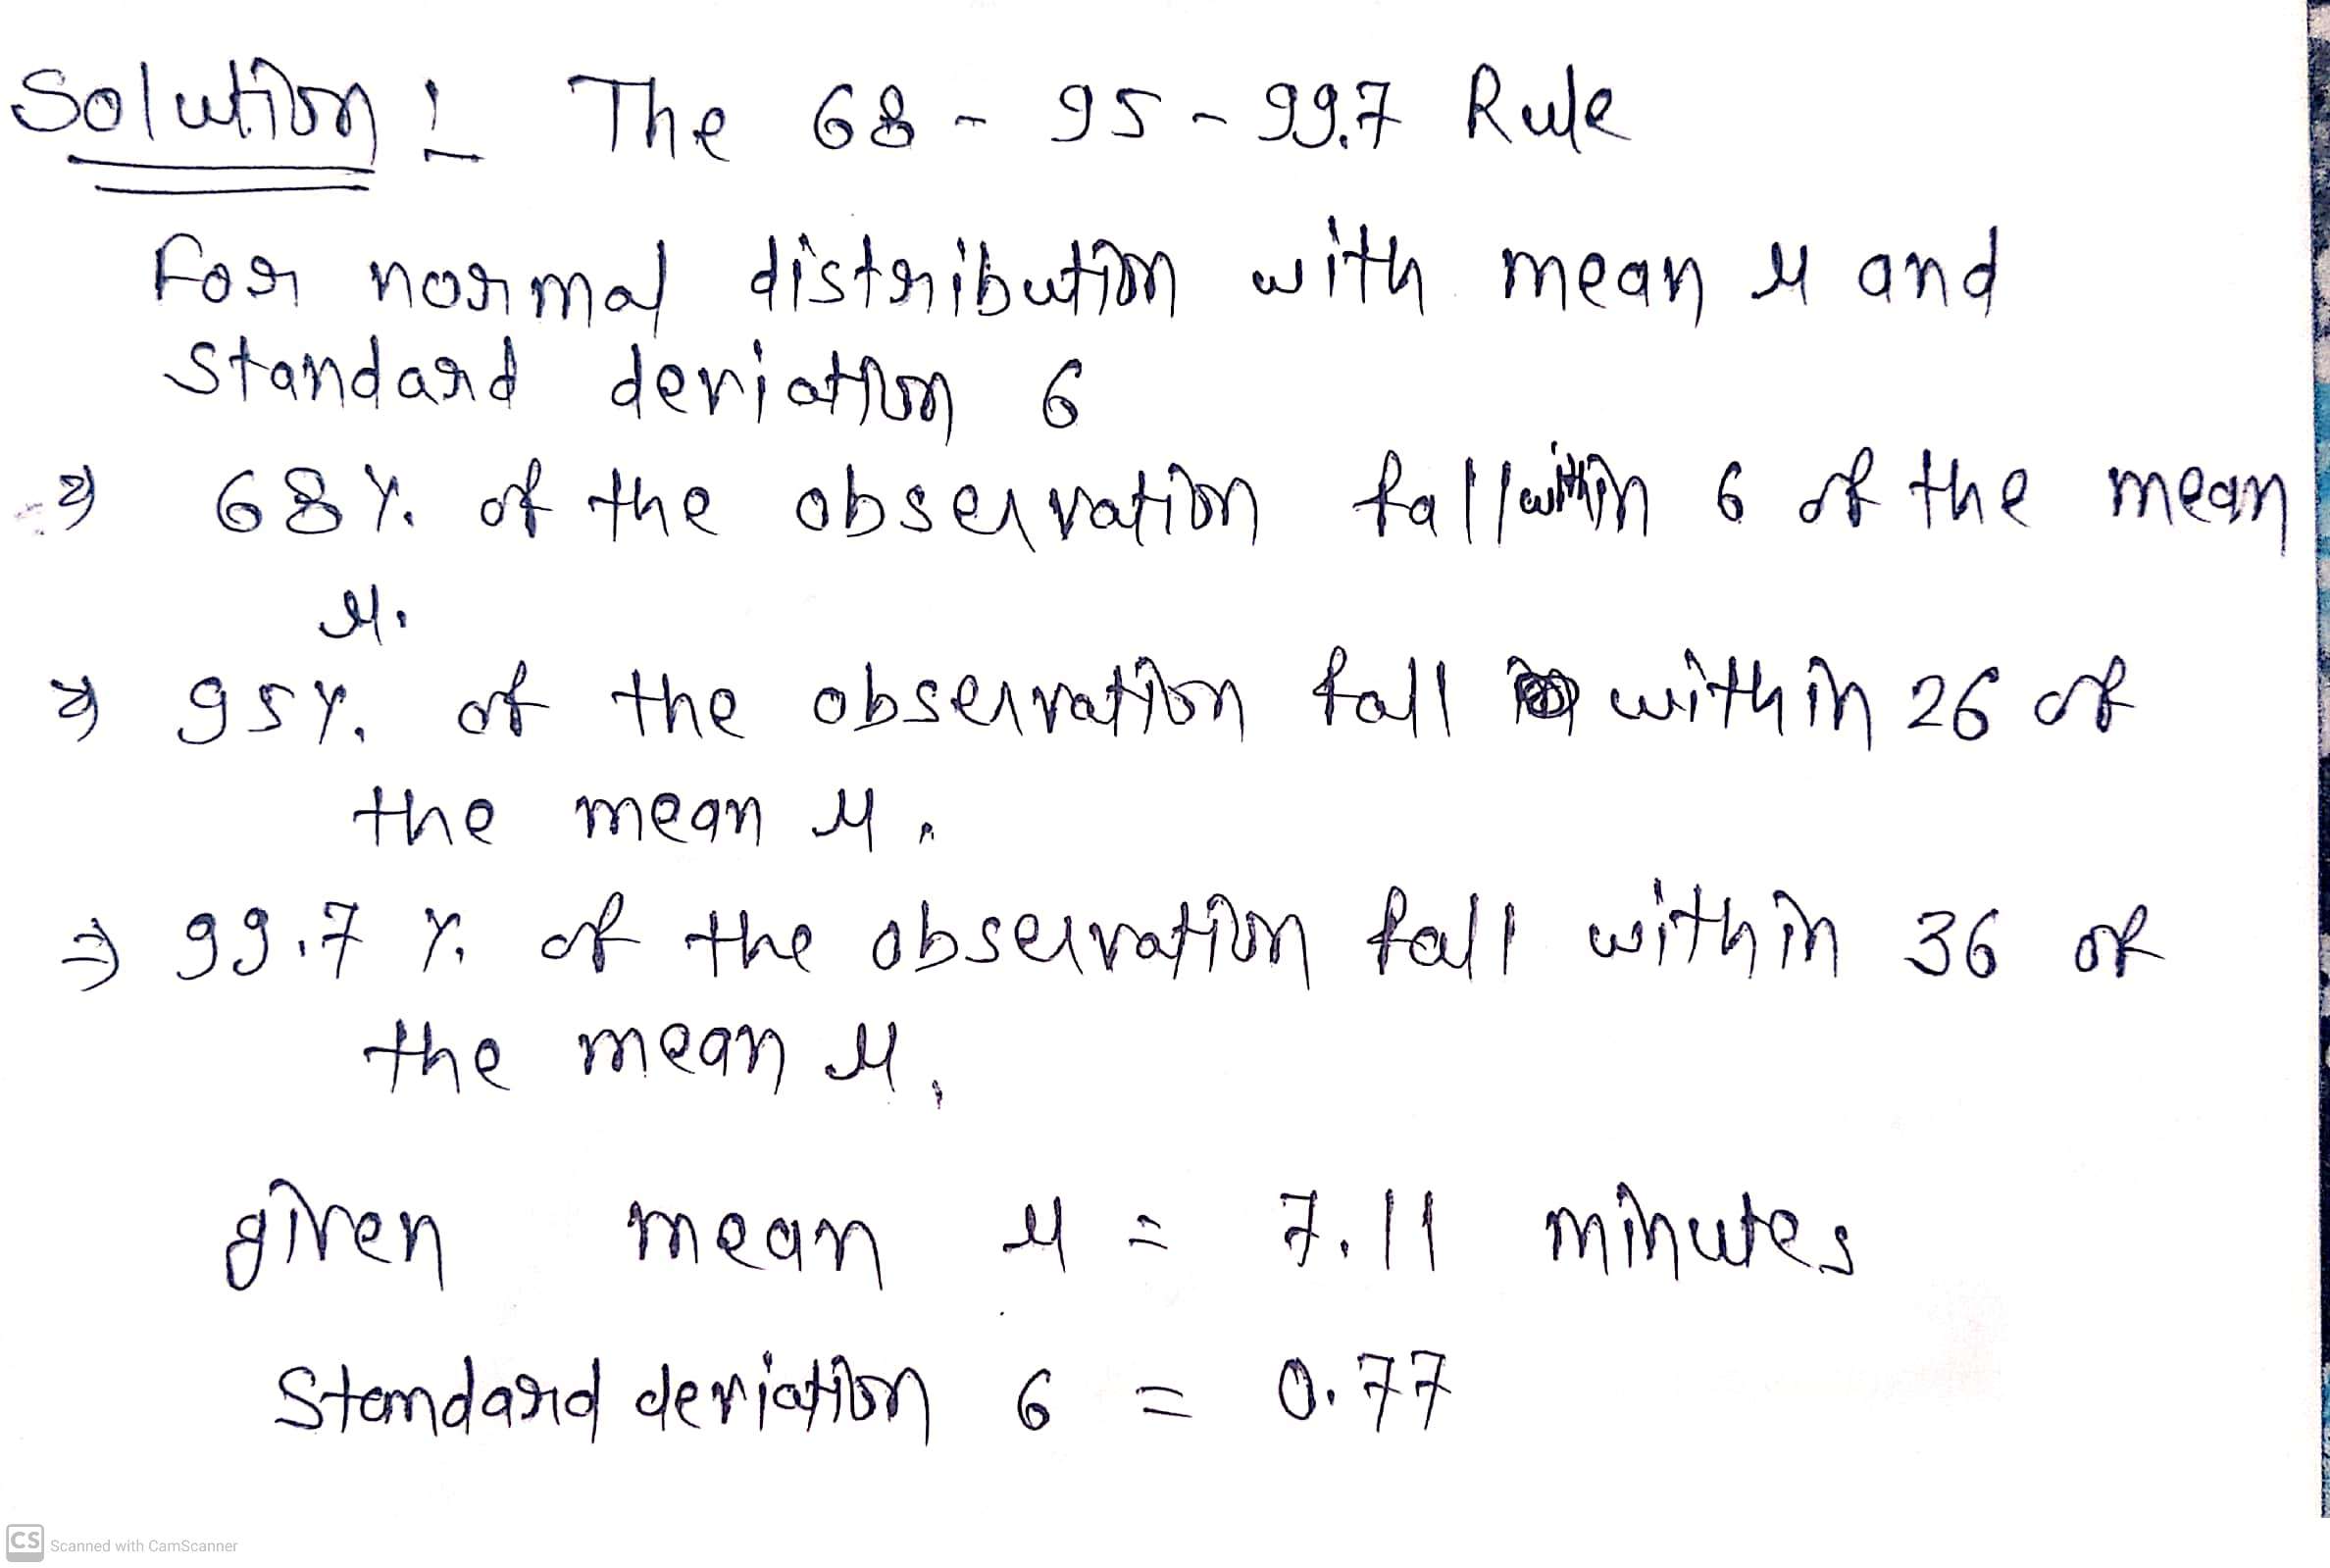 Solution :- The 68 - 95 - 99.7 Rule
For normal distribution with mean μ and
Standard deviation σ
⇒ 68% of the observation fall within σ of the mean
μ.
⇒ 95% of the observation fall within 2σ of
the mean μ.
⇒ 99.7 % of the observation fall within 3σ of
the mean μ.
given mean μ = 7.11 minutes
Standard deviation σ = 0.77
CS Scanned with CamScanner